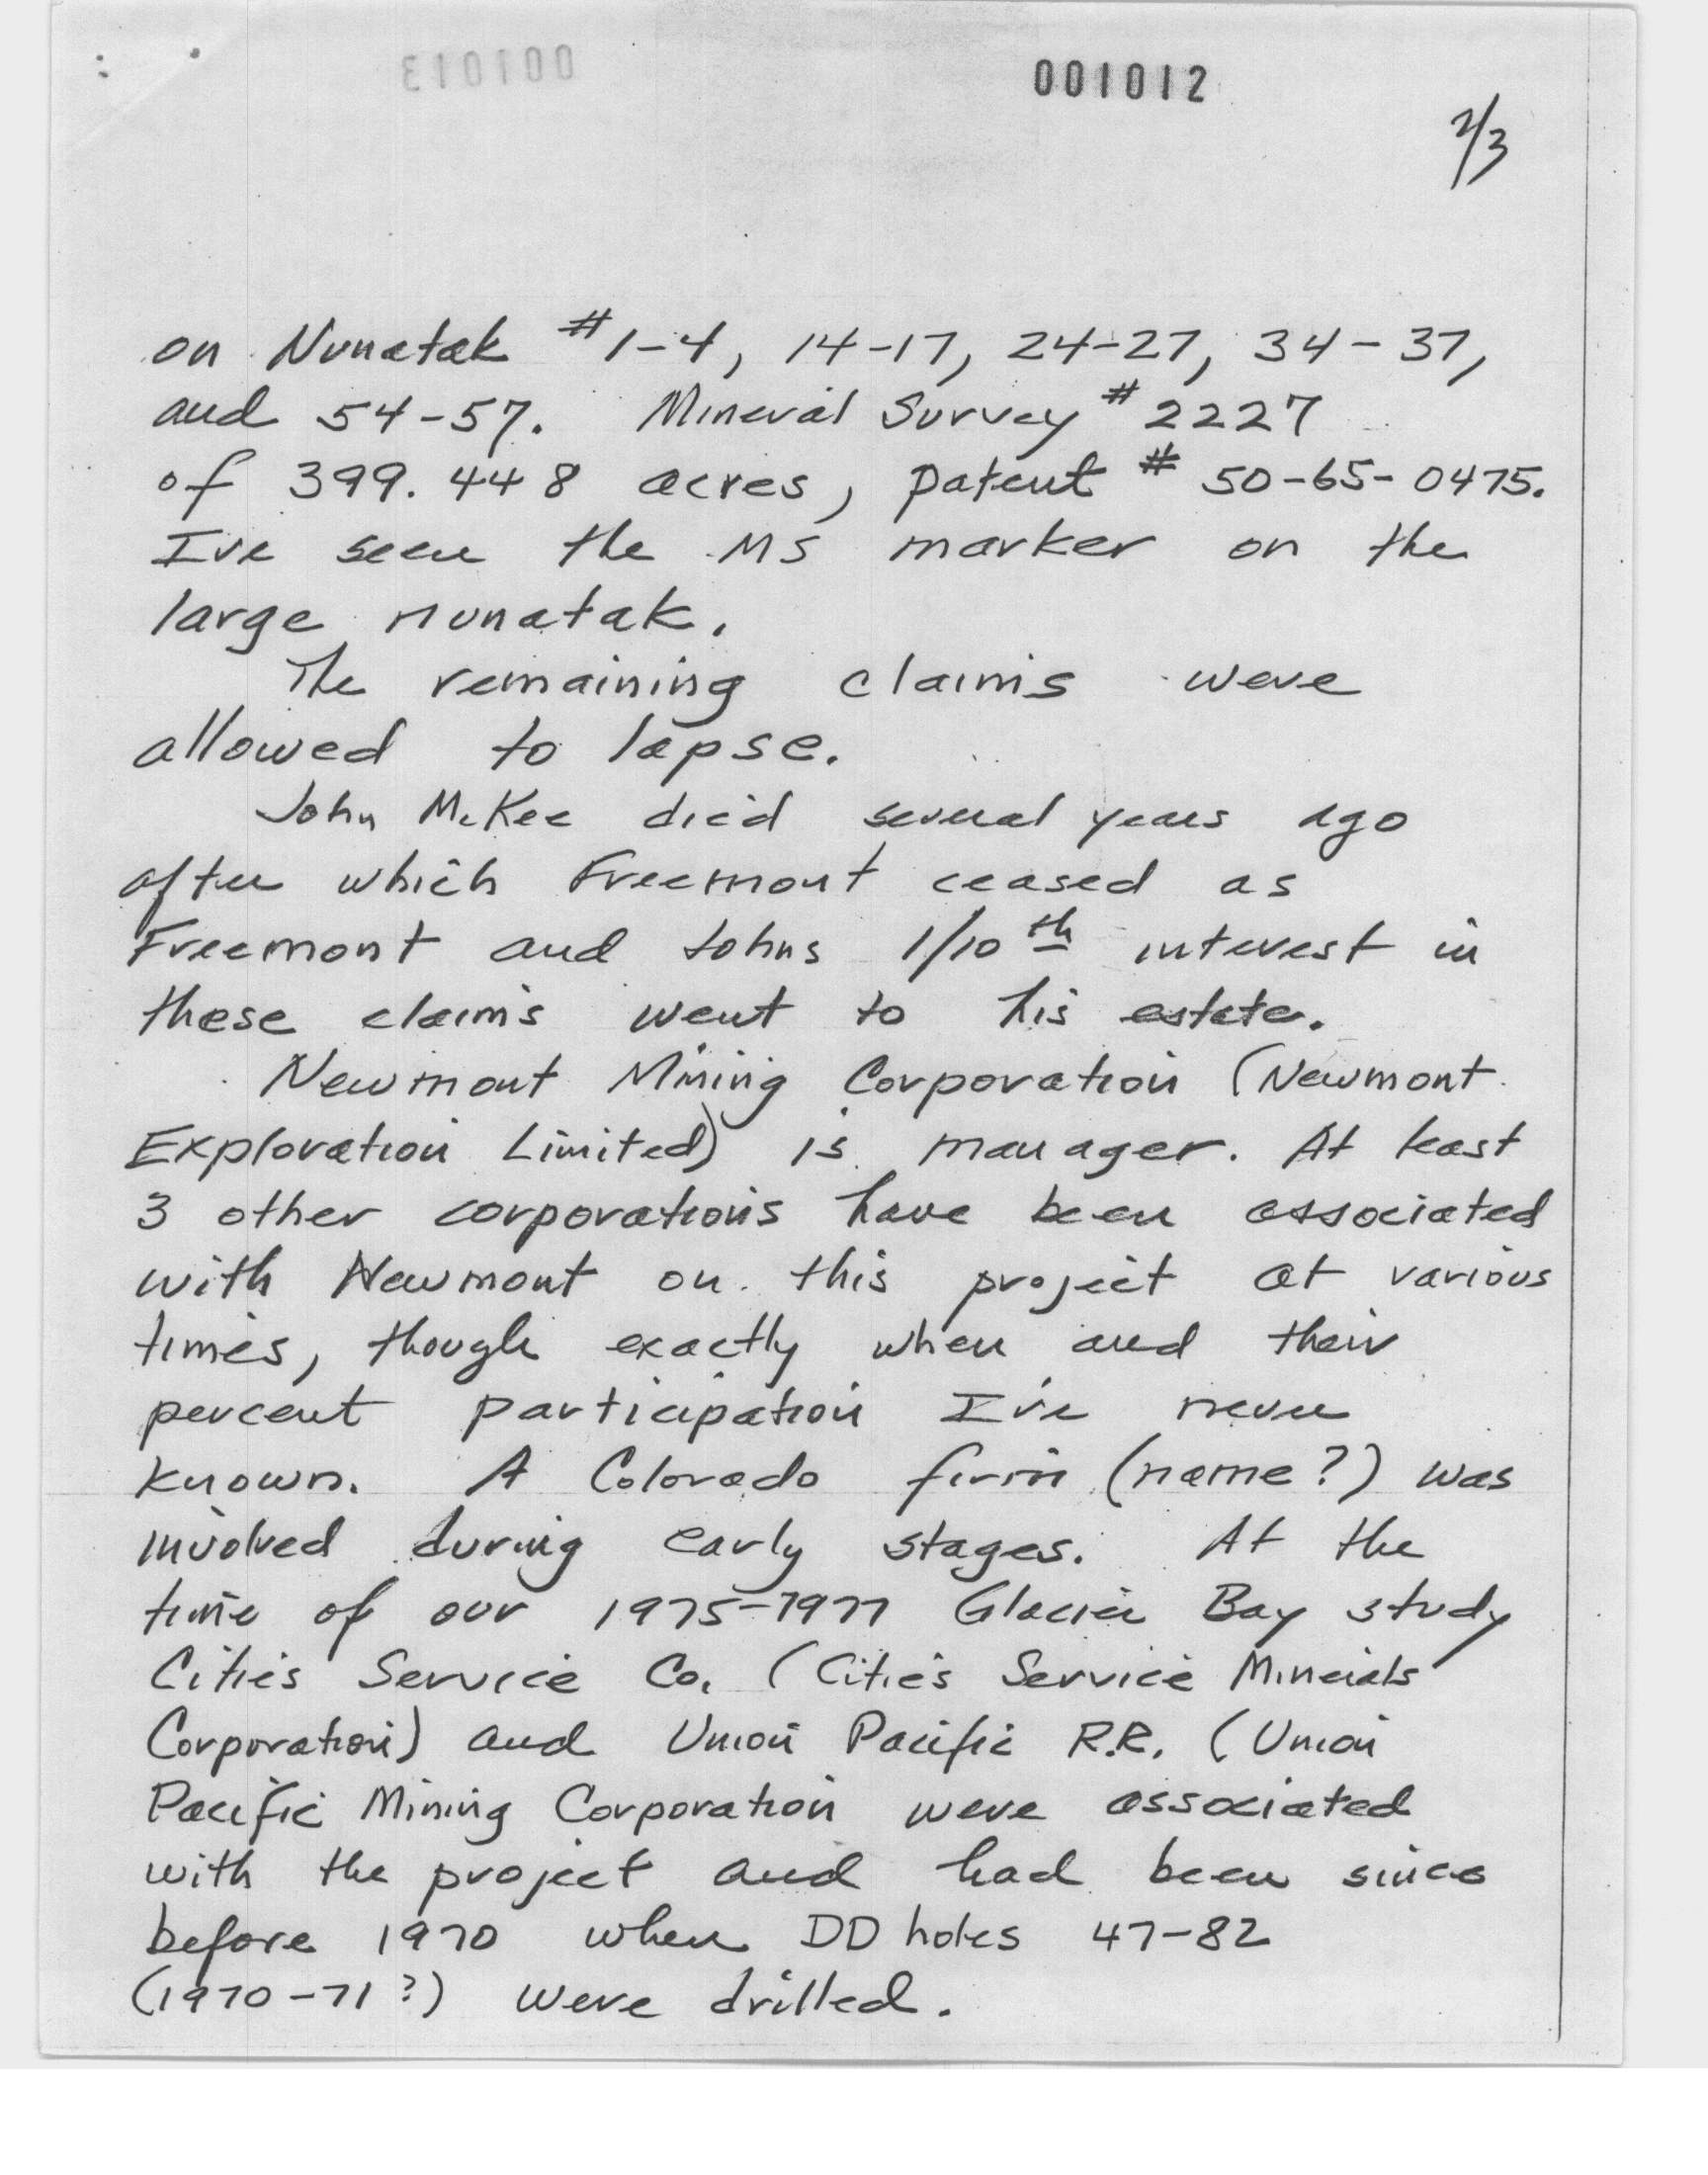 001013
001012
2/3
on Nunatak #1-4, 14-17, 24-27, 34-37,
and 54-57. Mineral Survey #2227
of 399.448 acres, patent # 50-65-0475.
I've seen the MS marker on the
large nunatak.
The remaining claims were
allowed to lapse.
John McKee died several years ago
after which Freemont ceased as
Freemont and Johns 1/10th interest in
these claims went to his estate.
Newmont Mining Corporation (Newmont
Exploration Limited) is manager. At least
3 other corporations have been associated
with Newmont on this project at various
times, though exactly when and their
percent participation I've never
known. A Colorado firm (name?) was
involved during early stages. At the
time of our 1975-1977 Glacier Bay study
Cities Service Co. (Cities Service Minerals
Corporation) and Union Pacific R.R. (Union
Pacific Mining Corporation were associated
with the project and had been since
before 1970 when DD holes 47-82
(1970-71?) were drilled.